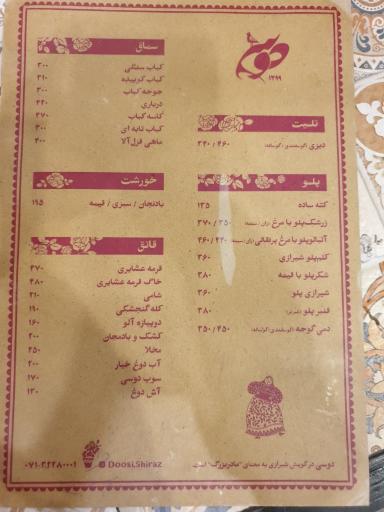 دوسی
۱۳۹۹
تلیت
دیزی (گوسفندی / گوساله) ۳۴۰ / ۴۶۰
پلو
کته ساده ۱۳۵
زرشک‌پلو با مرغ (ران / سینه) ۳۷۰ / ۳۵۰
آلبالوپلو با مرغ پرتقالی (ران / سینه) ۴۶۰ / ۴۲۰
کلم‌پلو شیرازی ۳۶۰
شکرپلو با قیمه ۳۸۰
شیرازی پلو ۳۶۰
قنبر پلو ۳۸۰
دمی گوجه (گوسفندی / گوساله) ۳۵۰ / ۴۵۰
سماق
کباب سفتلی ۳۰۰
کباب کوبیده ۳۱۰
جوجه کباب ۳۰۰
درباری ۴۴۰
کاسه کباب ۳۷۰
کباب تابه ای ۳۰۰
ماهی قزل‌آلا ۴۰۰
خورشت
بادنجان / سبزی / قیمه ۱۹۵
قاتق
قرمه عشایری ۴۷۰
خاگ قرمه عشایری ۴۸۰
شامی ۳۱۰
کله‌گنجشکی ۱۹۰
دوپیازه آلو ۱۶۰
کشک و بادمجان ۲۰۰
مخلا ۲۵۰
آب دوغ خیار ۲۰۰
سوپ دوسی ۱۷۰
آش دوغ ۱۳۰
دوسی در گویش شیرازی به معنای "مادربزرگ" است.
Doosi.Shiraz
۰۷۱-۳۲۲۸۰۰۰۱